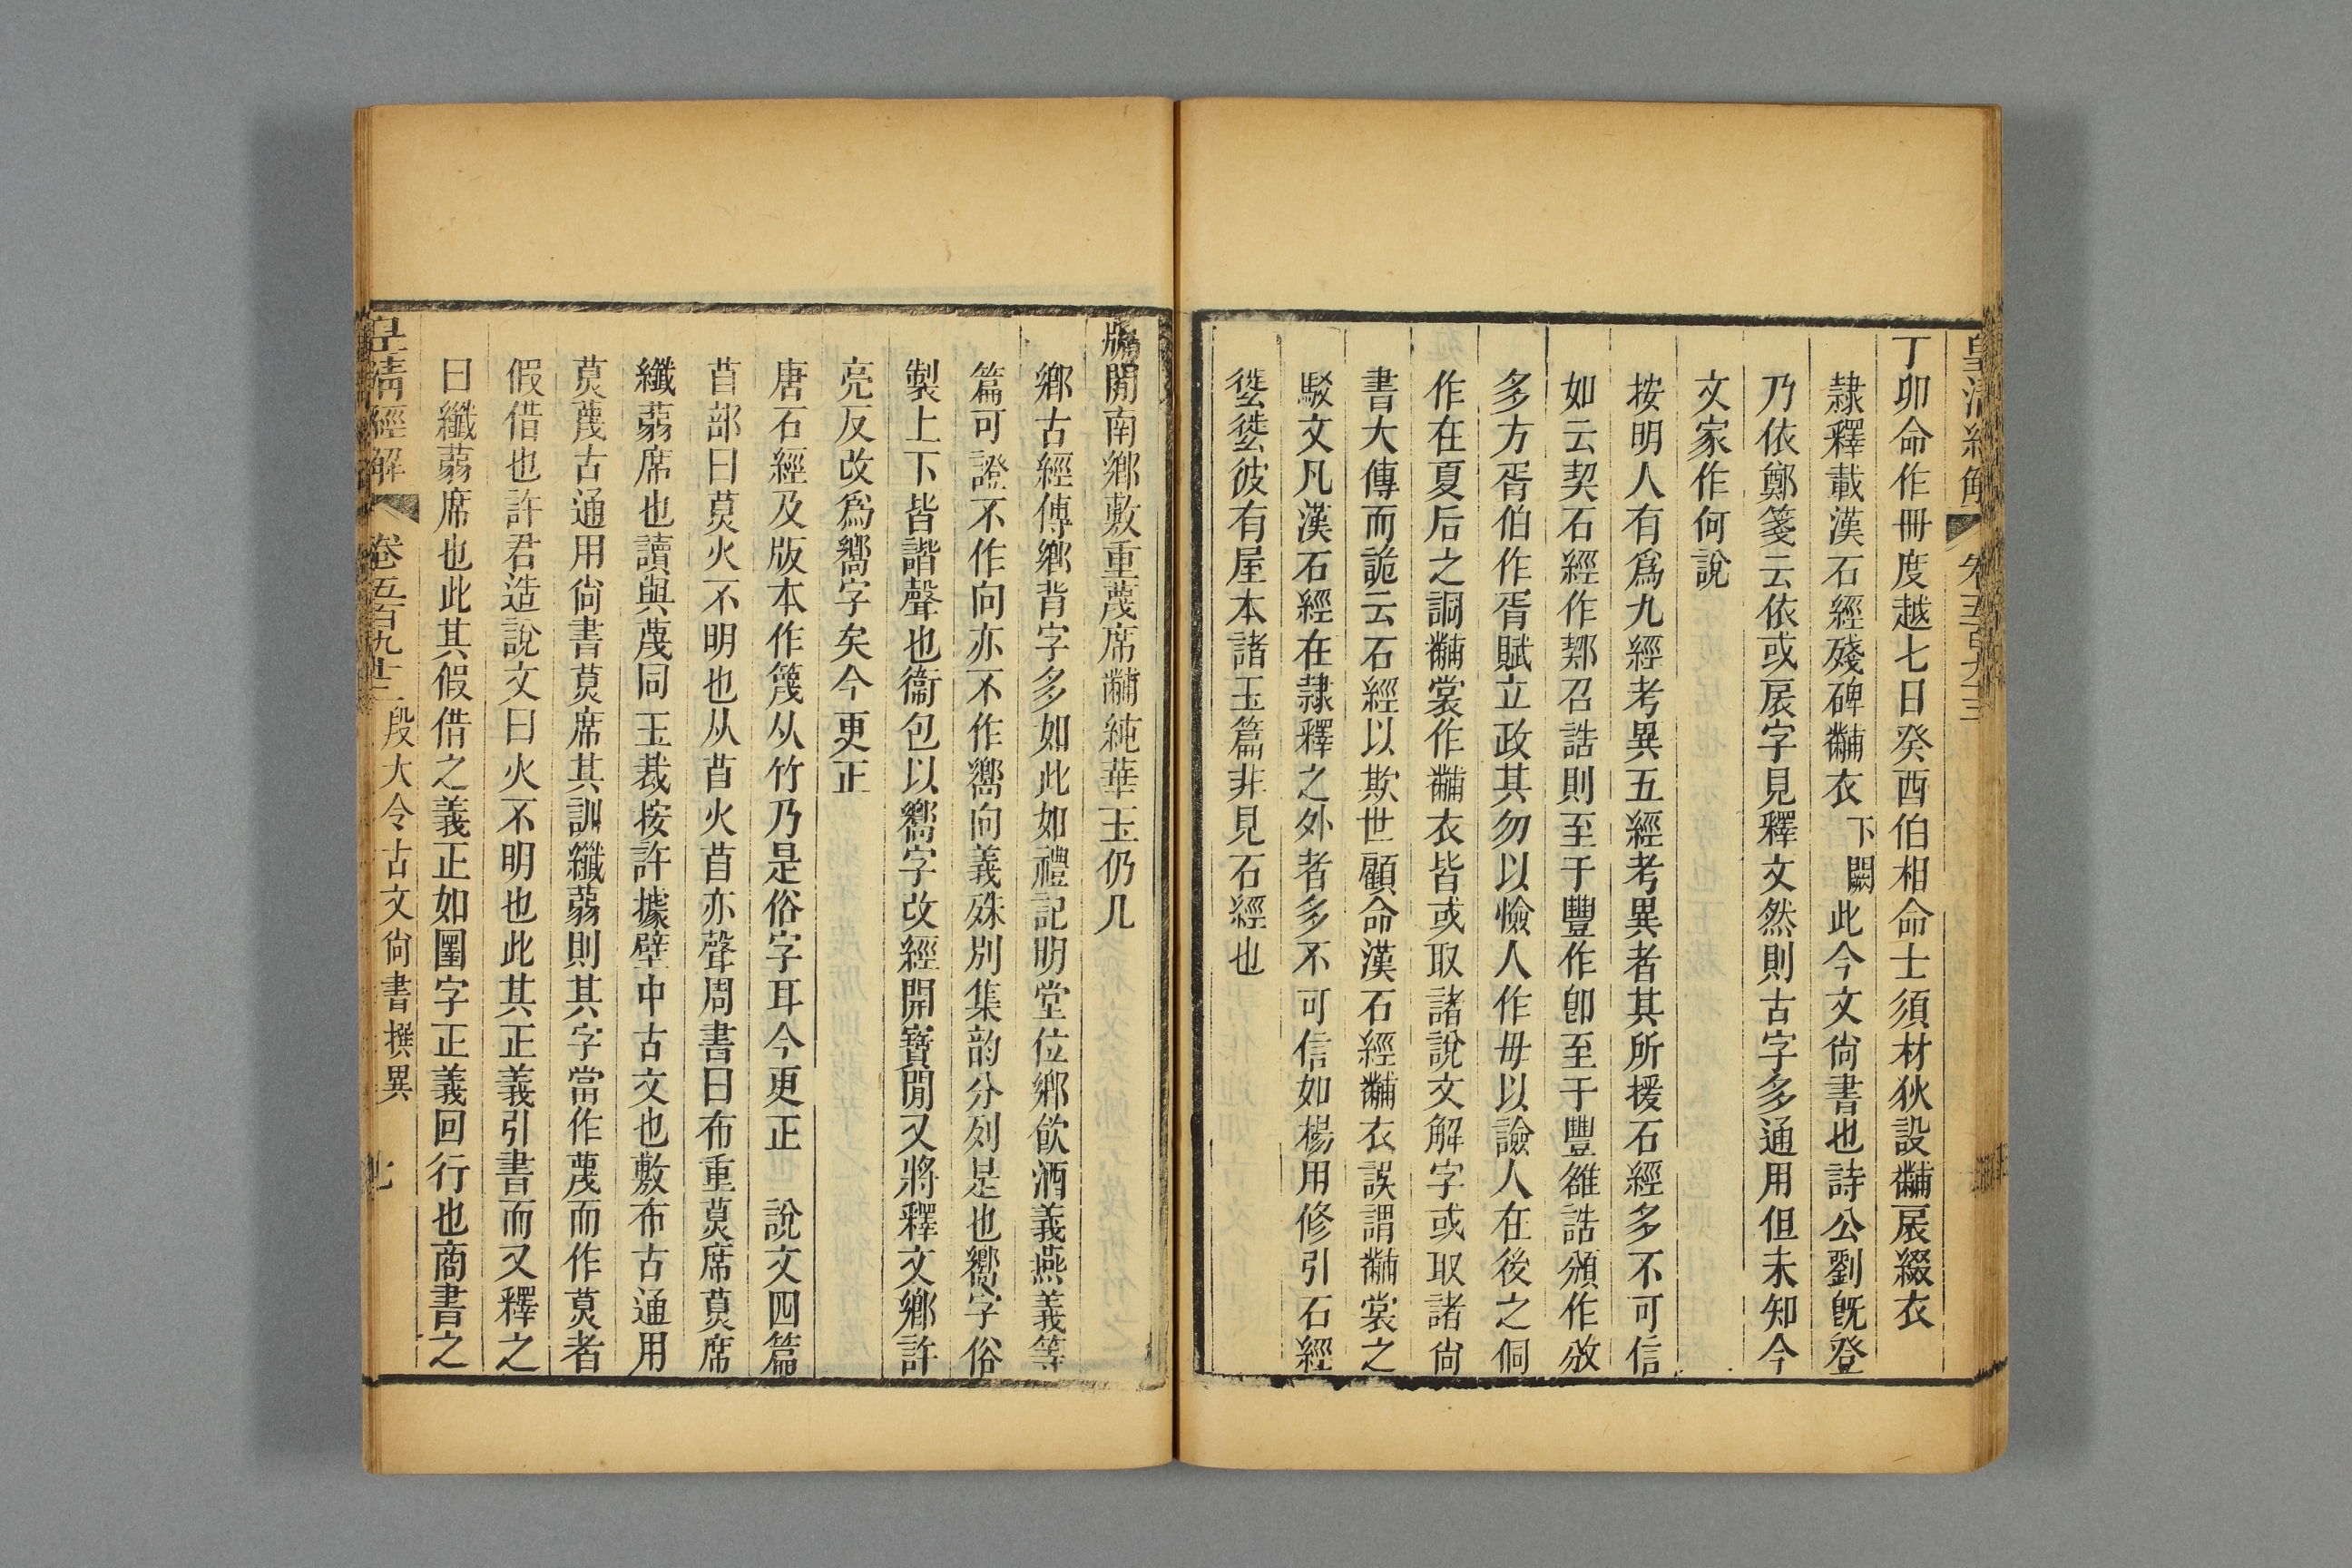 皇清經解 卷五百九十三
丁卯命作冊度越七日癸酉伯相命士須材狄設黼扆綴衣
隷釋載漢石經殘碑黼衣下闕此今文尙書也詩公劉旣登
乃依鄭箋云依或扆字見釋文然則古字多通用但未知今
文家作何說
按明人有爲九經考異五經考異者其所援石經多不可信
如云契石經作䢿召誥則至于豐作卽至于豐雒誥頒作攽
多方胥伯作胥賦立政其勿以憸人作毋以譣人在後之侗
作在夏后之詷黼裳作黼衣皆或取諸說文解字或取諸尙
書大傳而詭云石經以欺世顧命漢石經黼衣誤謂黼裳之
駁文凡漢石經在隷釋之外者多不可信如楊用修引石經
徙徙彼有屋本諸玉篇非見石經也
牖閒南鄉敷重蔑席黼純華玉仍几
鄉古經傳鄉背字多如此如禮記明堂位鄉飮酒義燕義等
篇可證不作向亦不作嚮向義殊別集韵分列是也嚮字俗
製上下皆諧聲也衞包以嚮字改經開寶閒又將釋文鄉許
亮反改爲嚮字矣今更正
唐石經及版本作篾从竹乃是俗字耳今更正 說文四篇
苜部曰莫火不明也从苜火苜亦聲周書曰布重莫席莫席
纖蒻席也讀與蔑同玉裁按許據壁中古文也敷布古通用
莫蔑古通用尙書莫席其訓纖蒻則其字當作蔑而作莫者
假借也許君造說文曰火不明也此其正義引書而又釋之
曰纖蒻席也此其假借之義正如圛字正義回行也商書之
皇清經解 卷五百九十三 段大令古文尙書撰異